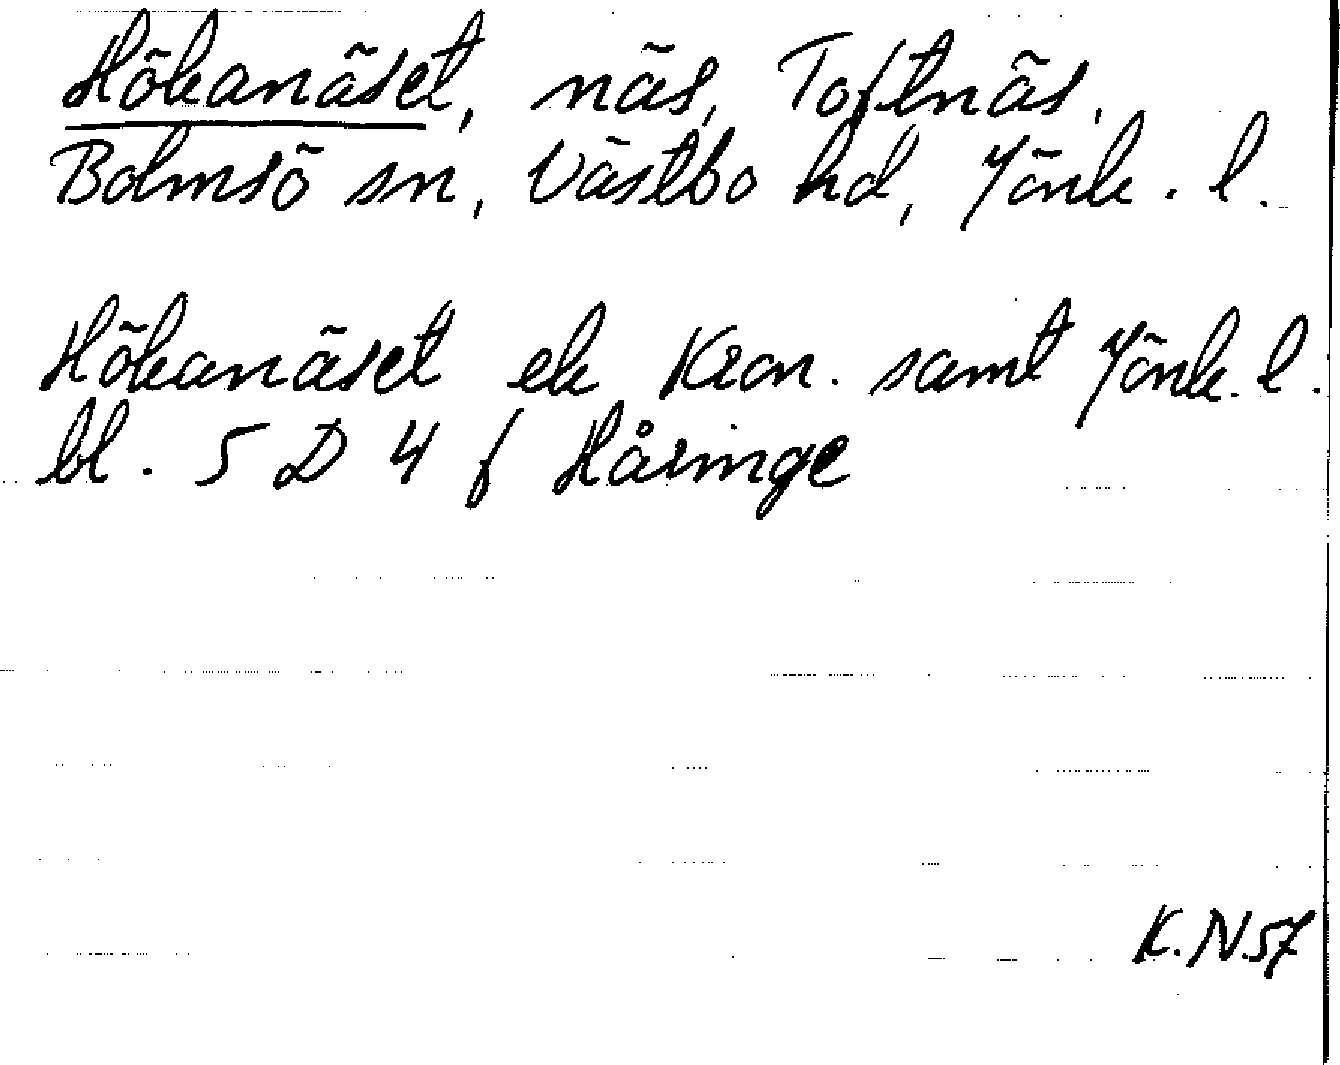 Hökanäset, näs, Toftnäs,
Bolmsö sn, Västbo hd, Jönk. l.
Hökanäset ek Kron. samt Jönk. l.
bl. 5 D 4 f Håringe
K. N. 57